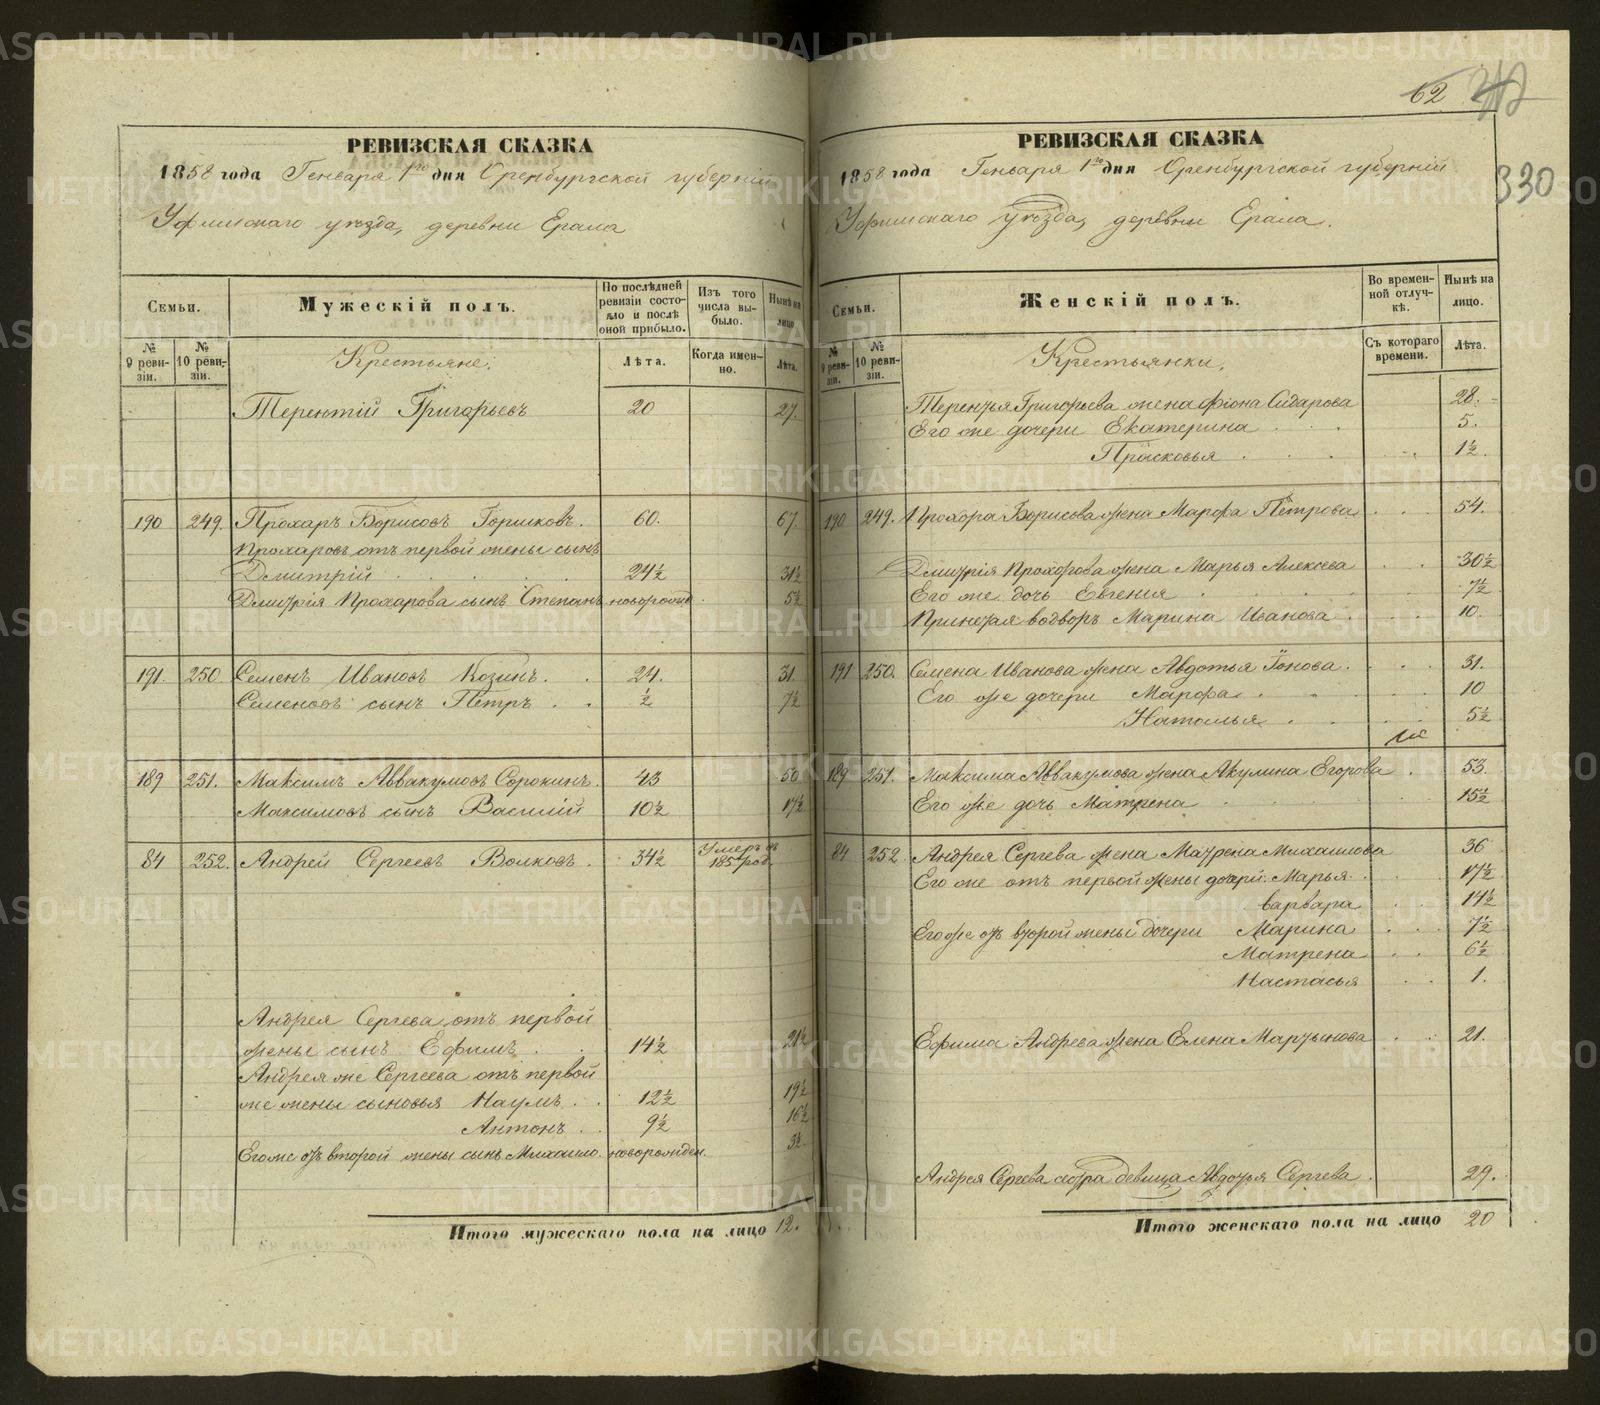 62
330
РЕВИЗСКАЯ СКАЗКА
1858 года Генваря 1го дня Оренбургской губернiи
Уфимскаго уѣзда, деревни Ерала
Семьи.
Мужескiй полъ.
По послѣдней ревизiи состояло и послѣ оной прибыло.
Изъ того числа выбыло.
Нынѣ на лицо
№ 9 ревизiи.
№ 10 ревизiи.
Крестьяне.
Лѣта.
Когда именно.
Лѣта.
Терентiй Григорьевъ 20 27.
190 249. Прохаръ Борисовъ Горшковъ. 60. 67
Прохаровъ отъ первой жены сынъ
Дмитрiй 24½ 31½
Дмитрiя Прохарова сынъ Степанъ новорожд. 5½
191. 250 Семенъ Ивановъ Козинъ. 24. 31.
Семеновъ сынъ Петръ ½ 7½
189 251. Максимъ Аввакумовъ Сорокинъ. 43 50
Максимовъ сынъ Василiй 10½ 17½
84 252. Андрей Сергеевъ Волковъ. 34½ Умеръ въ
Андрея Сергева отъ первой
жены сынъ Ефимъ 14½ 21½
Андрея же Сергеева отъ первой
же жены сыновья Наумъ 12½ 19½
Антонъ 9½ 16½
Его же отъ второй жены сынъ Михаило новорожден. 3½
Итого мужескаго пола на лицо 12.
РЕВИЗСКАЯ СКАЗКА
1858 года Генваря 1го дня Оренбургской губернiй
Уфимскаго уѣзда, деревни Ерала.
Семьи.
Женскiй полъ.
Во временной отлучкѣ.
Нынѣ на лицо.
№ 9 ревизiи.
№ 10 ревизiи.
Крестьянки.
Съ котораго времени.
Лѣта.
Терентья Григорьева жена Фiона Сидарова 28.
Его же дочери Екатерина 5.
Прасковья 1½.
190 249. Прохора Борисова жена Марфа Петрова 54.
Дмитрiя Прохорова жена Марья Алексева 30½
Его же дочь Евгения 7½
Принетая водворъ Марина Иванова 10.
191 250. Семена Иванова жена Авдотья Iонова. 31.
Его же дочери Марфа 10
Наталья 5½
189 251. Максима Аввакумова жена Акулина Егорова 53.
Его же дочь Матрена 15½
84 252 Андрея Сергева жена Матрена Михаилова 36
Его же отъ первой жены дочери Марья 17½
Варвара 14½
Его же отъ второй жены дочери Марина 7½
Матрена 6½
Настасья 1.
Ефима Андрева жена Елена Мартынова 21.
Андрея Сергева сестра девица Авдотья Сергева 29.
Итого женскаго пола на лицо 20
METRIKI.GASO-URAL.RU